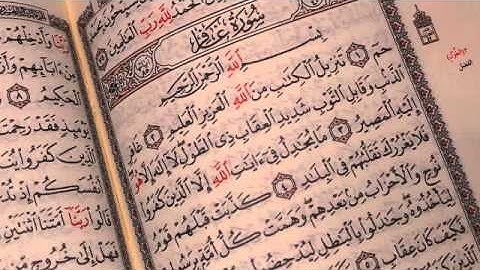 الْحَمْدُ لِلَّهِ رَبِّ الْعَالَمِينَ
سُورَةُ غَافِر
بِسْمِ اللَّهِ الرَّحْمَٰنِ الرَّحِيمِ
حمٓ ١ تَنزِيلُ الْكِتَٰبِ مِنَ اللَّهِ الْعَزِيزِ الْعَلِيمِ ٢ غَافِرِ
الذَّنبِ وَقَابِلِ التَّوْبِ شَدِيدِ الْعِقَابِ ذِي الطَّوْلِ لَا إِلَٰهَ إِلَّا هُوَ
إِلَيْهِ الْمَصِيرُ ٣ مَا يُجَٰدِلُ فِي ءَايَٰتِ اللَّهِ إِلَّا الَّذِينَ كَفَرُوا
فَلَا يَغْرُرْكَ تَقَلُّبُهُمْ فِي الْبِلَٰدِ ٤ كَذَّبَتْ قَبْلَهُمْ قَوْمُ
نُوحٍ وَالْأَحْزَابُ مِن بَعْدِهِمْ وَهَمَّتْ كُلُّ أُمَّةٍ بِرَسُولِهِمْ
لِيَأْخُذُوهُ وَجَٰدَلُوا بِالْبَٰطِلِ لِيُدْحِضُوا
فَكَيْفَ كَانَ عِقَابِ ٥
رَبَّنَا وَأَدْخِلْهُمْ
مِنْ ءَابَائِهِمْ
الْحَكِيمُ ٨
فَقَدْ رَحِمْتَ
الَّذِينَ كَفَرُوا
أَنفُسَكُمْ إِذْ
قَالُوا رَبَّنَا أَمَتَّنَا اثْنَتَيْنِ
فَهَلْ إِلَىٰ خُرُوجٍ مِّن